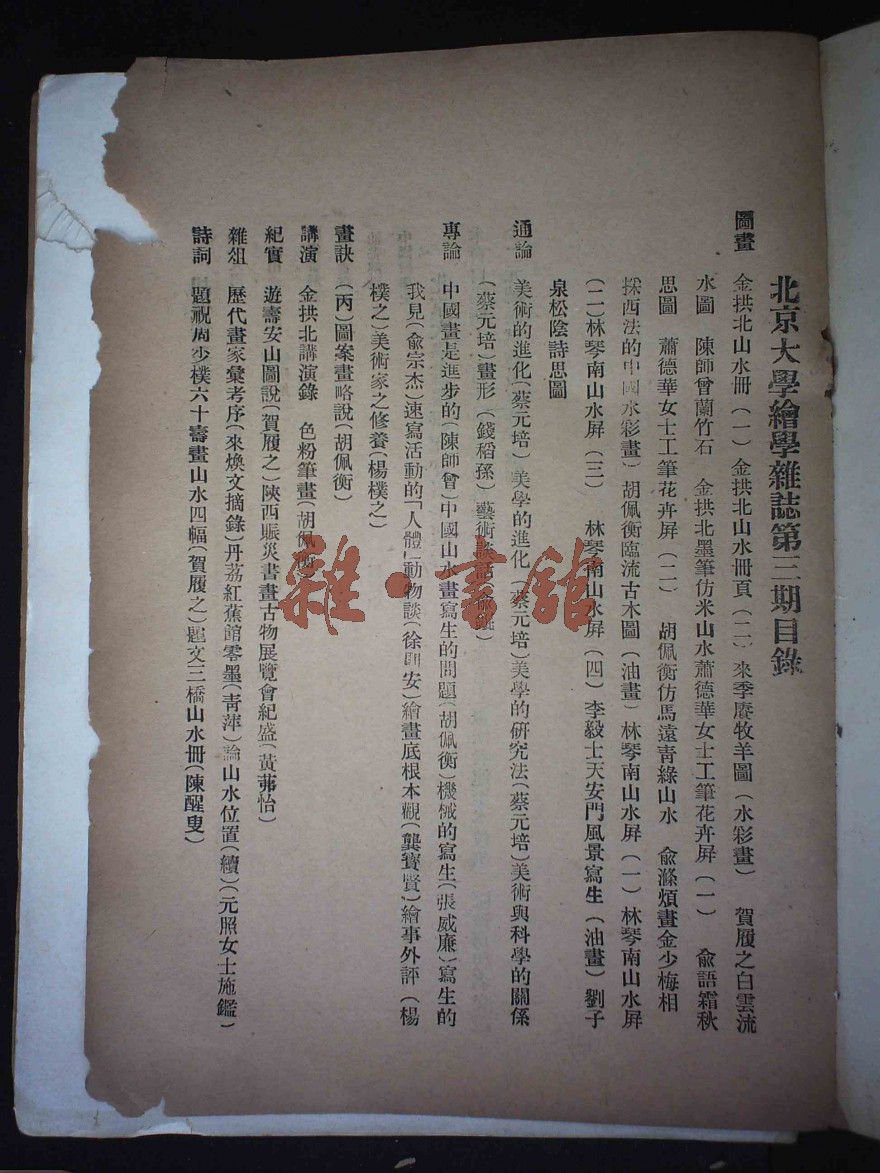 北京大學繪學雜誌第三期目錄
圖畫 金拱北山水冊(一)金拱北山水冊頁(二)來季廥牧羊圖(水彩畫) 賀履之白雲流
水圖 陳師曾蘭竹石 金拱北墨筆仿米山水蕭德華女士工筆花卉屏(一) 俞語霜秋
思圖 蕭德華女士工筆花卉屏(二) 胡佩衡仿馬遠青綠山水 俞滌煩畫金少梅相
採西法的中國水彩畫)胡佩衡臨流古木圖(油畫)林琴南山水屏(一)林琴南山水屏
(二)林琴南山水屏(三) 林琴南山水屏(四)李毅士天安門風景寫生(油畫)劉子
泉松陰詩思圖
通論 美術的進化(蔡元培)美學的進化(蔡元培)美學的研究法(蔡元培)美術與科學的關係
(蔡元培)畫形(錢稻孫)藝術談話
專論 中國畫是進步的(陳師曾)中國山水畫寫生的問題(胡佩衡)機械的寫生(張威廉)寫生的
我見(俞宗杰)速寫活動的「人體」動物談(徐 安)繪畫底根本觀(龔寶賢)繪事外評(楊
樸之)美術家之修養(楊樸之)
畫訣 (丙)圖案畫略說(胡佩衡)
講演 金拱北講演錄 色粉筆畫(胡佩衡)
紀實 遊壽安山圖說(賀履之)陝西賑災書畫古物展覽會紀盛(黃茀怡)
雜俎 歷代畫家彙考序(來煥文摘錄)丹荔紅蕉館零墨(青萍)論山水位置(續)(元照女士施鑑)
詩詞 題祝周少樸六十壽畫山水四幅(賀履之)題文三橋山水冊(陳醒叟)
雜·書館